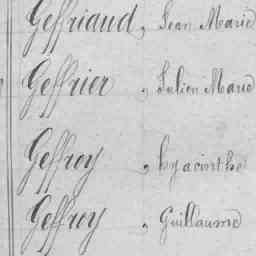 Geffriaud, Jean Marie
Geffrier, Julien Marie
Geffroy, hyacinthe
Geffroy, Guillaume